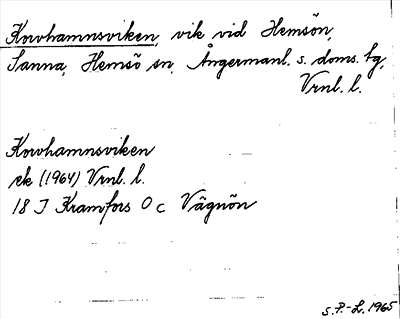 Korvhamnsviken, vik vid Hemsön,
Sanna, Hemsö sn, Ångermanl. s. doms. tg,
Vrnl. l.
Korvhamnsviken
ek (1964) Vrnl. l.
18 I Kramfors O c Vägnön
S.P.-L. 1965